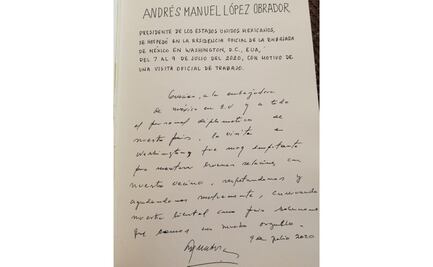 ANDRÉS MANUEL LÓPEZ OBRADOR
PRESIDENTE DE LOS ESTADOS UNIDOS MEXICANOS,
SE HOSPEDÓ EN LA RESIDENCIA OFICIAL DE LA EMBAJADA
DE MÉXICO EN WASHINGTON, D.C., EUA,
DEL 7 AL 9 DE JULIO DEL 2020, CON MOTIVO DE
UNA VISITA OFICIAL DE TRABAJO.
Gracias, a la embajadora
de méxico en E.U y a todo
el personal diplomático de
nuestro país. la visita a
Washington fue muy importante
para mantener buenas relaciones con
nuestro vecino, respetandonos y
ayudandonos mutuamente,
nuestra libertad como país soberano
que somos
9 de julio 2020